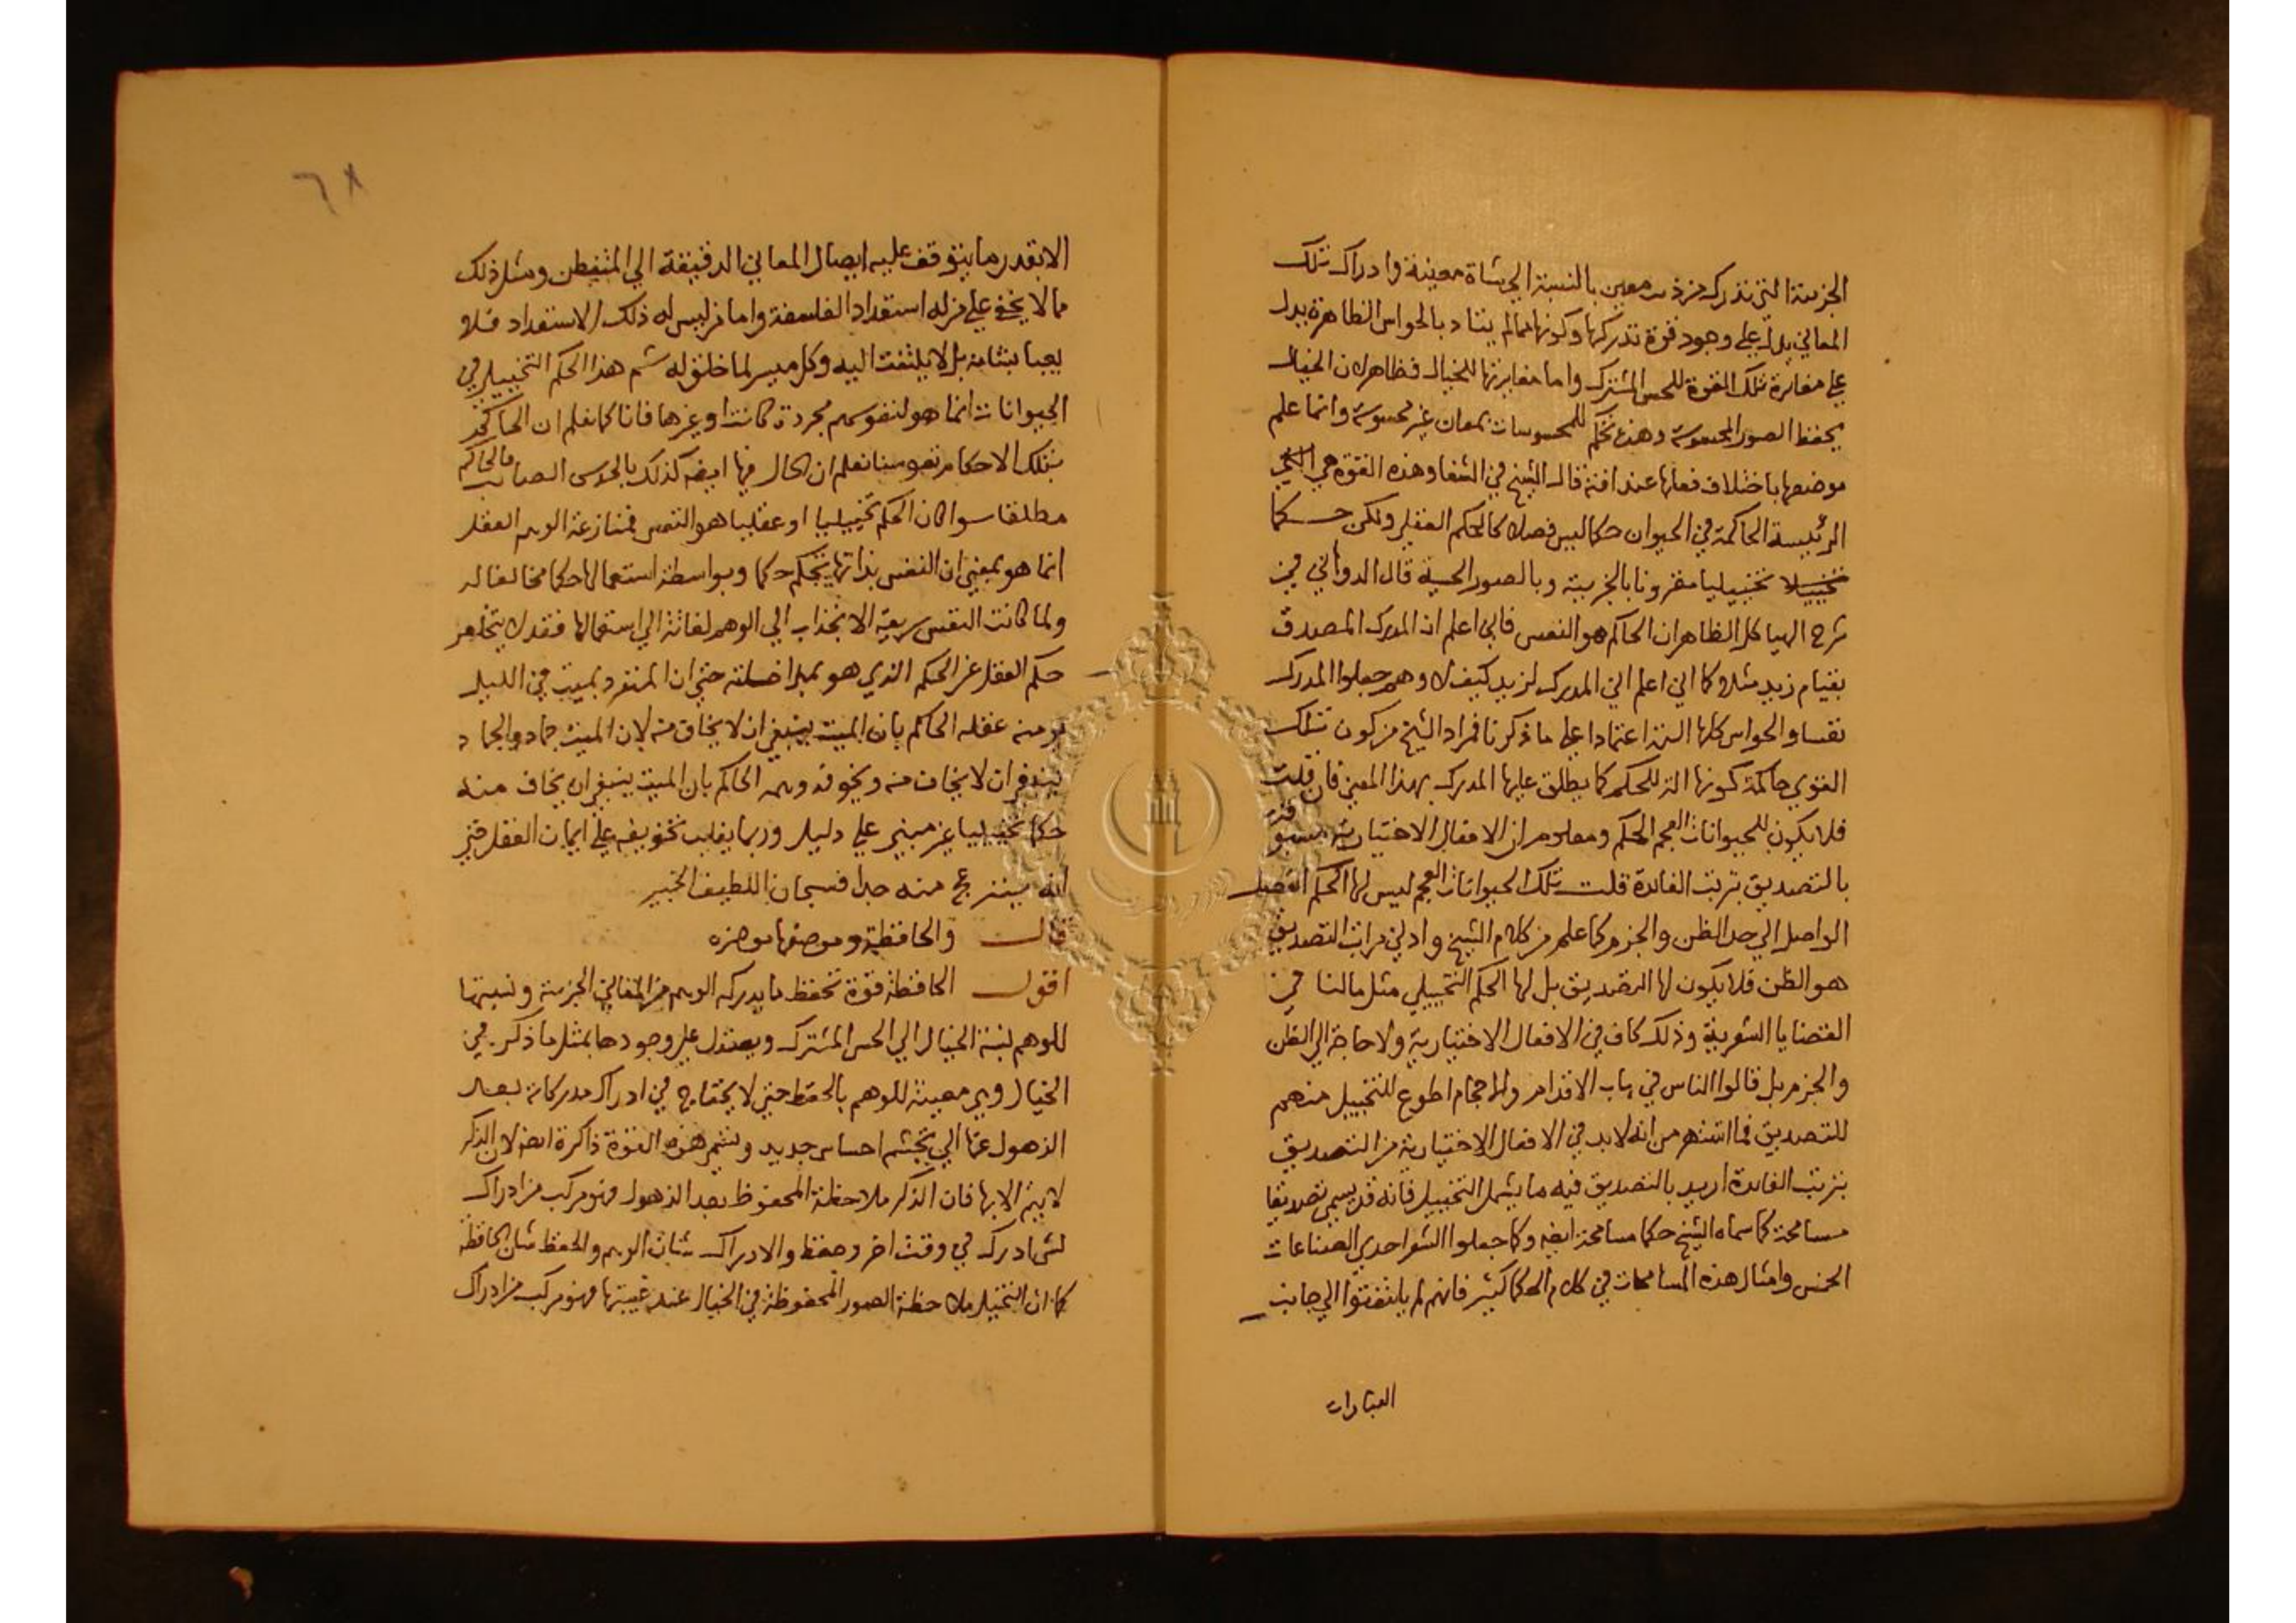 الجزئية التي تدركه من ذئب معين بالنسبة الي شاة معينة وادراك تلك
المعاني يدل علي وجود قوة تدركها وكونها مما لم يتاد بالحواس الظاهرة يدل
علي مغايرة تلك القوة للحس المشترك واما مغايرتها للخيال فظاهر لان الخيال
يحفظ الصور المحسوسة وهذه تحكم للمحسوسات بمعان غير محسوسة وانما علم
موضعها باختلاف فعلها عند افته قال الشيخ في الشفا وهذه القوة هي التي
الرئيسة الحاكمة في الحيوان حكما ليس فصلا كالحكم العقلي ولكن حكما
تخييلا تخييليا مقرونا بالجزيية وبالصور الحسية قال الدواني في
شرح الهياكل الظاهر ان الحاكم هو النفس فاني اعلم ان المدرك المصدق
بقيام زيد مثلا كما اني اعلم اني المدرك لزيد كيف لا وهم جعلوا المدرك
نفسا والحواس كلها الته اعتمادا علي ما ذكرنا فمراد الشيخ من كون تلك
القوي حاكمة كونها الة للحكم كما يطلق عليها المدرك بهذا المعني فان قلت
فلا يكون للحيوانات العجم الحكم ومعلوم ان الافعال الاختيارية مسبوقة
بالتصديق بترتب الفائدة قلت تلك الحيوانات العجم ليس لها الحكم الفصل
الواصل الي حد الظن والجزم كما علم من كلام الشيخ وادني مراتب التصديق
هو الظن فلا يكون لها التصديق بل لها الحكم التخييلي مثل ما لنا في
القضايا الشعرية وذلك كاف في الافعال الاختيارية ولا حاجة الي الظن
والجزم بل قالوا الناس في باب الاقدام والاحجام اطوع للتخييل منهم
للتصديق فما اشتهر من انه لا بد في الافعال الاختيارية من التصديق
بترتب الفائدة اريد بالتصديق فيه ما يشمل التخييل فانه قد يسمي تصديقا
مسامحة كما سماه الشيخ حكما مسامحة ايضه وكما جعلوا الشعر احدي الصناعات
الخمس وامثال هذه المسامحات في كلام الحكما كثير فانهم لم يلتفتوا الي جانب
العبارات
٦٨
الا بقدر ما يتوقف عليه ايصال المعاني الدقيقة الي المتفطن ومثل ذلك
مما لا يخفي علي من له استعداد الفلسفة واما من ليس له ذلك الاستعداد فلا
يعبا بشانه بل لا يلتفت اليه وكل ميسر لما خلق له ثم هذا الحكم التخييلي في
الحيوانات انما هو لنفوسهم مجردة كانت او غيرها فانا كما نعلم ان الحاكم
بتلك الاحكام نفوسنا نعلم ان الحال فيها ايضه كذلك بالحدس الصائب فالحاكم
مطلقا سوا كان الحكم تخييليا او عقليا هو النفس فمنازعة الوهم العقل
انما هو بمعني ان النفس بذاتها يحكم حكما وبواسطة استعمالها حكما مخالفا له
ولما كانت النفس سريعة الانجذاب الي الوهم لفائة الي استعمالها فقد لا يتخلص
حكم العقل عن الحكم الذي هو بمداخلته حتي ان المنفرد بميت في الليل
يومنه عقله الحاكم بان الميت ينبغي ان لا يخاف منه لان الميت جماد والجماد
ينبغي ان لا يخاف منه ويخوفه وهمه الحاكم بان الميت ينبغي ان يخاف منه
حكما تخييليا غير مبني علي دليل وربما يغلب تخويفه علي ايمان العقل حتي
انه ينزعج منه جدا فسبحان اللطيف الخبير
قال والحافظة وموضعها موخره
اقول الحافظة قوة تحفظ ما يدركه الوهم من المعاني الجزئية ونسبتها
للوهم نسبة الخيال الي الحس المشترك ويستدل علي وجودها بمثل ما ذكر في
الخيال وهي معينة للوهم بالحفظ حتي لا يحتاج في ادراك مدركاته بعد
الذهول عنها الي تجشم احساس جديد وتسمي هذه القوة ذاكرة ايضا لان الذكر
لا يتم الا بها فان الذكر ملاحظة المحفوظ بعد الذهول وهو مركب من ادراك
لشي ادرك في وقت اخر وحفظ والادراك شان الوهم والحفظ شان الحافظة
كما ان التخيل ملاحظة الصور المحفوظة في الخيال عند غيبتها وهو مركب من ادراك